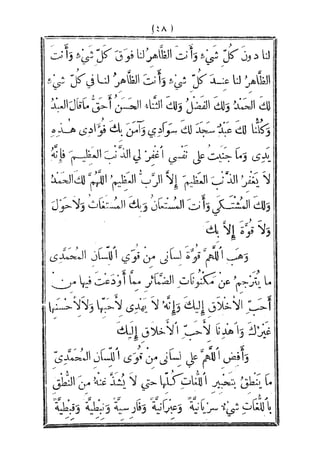 (٤٨)
لنا دون كلّ شيْءٍ وأنت الظاهرُ لنا فوقَ كلّ شيْءٍ وأنت
الظاهرُ لنا عنــد كلّ شيْءٍ وأنتَ الظَّاهرُ لنا في كلّ شيْءٍ
لك الحمْدُ ولكَ الفضْلُ ولكَ الثناء الحسَنُ أحقُّ ما قالَ العبْدُ
وكُلُّنا لكَ عبْدٌ سجَدَ لك سوَادِي وآمَنَ بِكَ فؤادى هذِهِ
يَدِى وَما جنَيتُ على نفْسي اغفِرْ لي الذَّنْبَ العظيم فإنَّهُ
لاَ يَغفِرُ الذَّنْبَ العظيمَ إلاَّ الرَّبُّ العظيمُ اللهُمَّ لكَ الحَمدُ
ولكَ المُشْتَــكَى وأنتَ المُستَعانُ وَبِكَ المُستَغاثُ وَلاَ حَوْلَ
ولاَ قوَّةَ إلاَّ بكَ
وَهَب اللَّهمَّ قوَّةَ لِسانى مِنْ قوَى اللّسان المُحمَّدى
ما يُتَرْجمُ عنْ مَكنُونَات الضَّمائرِ ممَّا أودَعْتَ فيها من
أحَبّ الأخْلاق إليكَ وَإنَّهُ لاَ يَهدِى لأَحَبّها ولاَ لأَحْسَنِها
غيْرُكَ وَاهْدِنَا لأَحبِّ الأخلاق إليْكَ
وَأفِض اللَّهُمَّ علَى لِسانى مِنْ قوَى اللّسان المُحمَّدِىّ
ما يَنْطِقُ بتَحْبِيرِ اللُّغات كُلّها حتى لاَ يُشَذَّ عنهُ منَ النُّطْقِ
باللُّغاتِ شيْءٌ سرْيَانيَّةً وَعِبْرَانيَّةً وَفارِسيَّةً وَنبَطِيَّةً وَقِبْطيَّةً